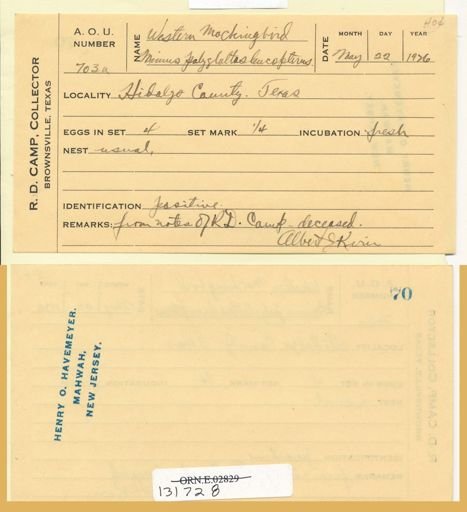 406
A. O. U.
NUMBER
703a
NAME
Western Mockingbird
Mimus polyglottos leucopterus
DATE
MONTH DAY YEAR
May 22 1926
R. D. CAMP, COLLECTOR
BROWNSVILLE, TEXAS
LOCALITY Hidalgo County. Texas
EGGS IN SET 4 SET MARK 1/4 INCUBATION fresh
NEST usual.
IDENTIFICATION positive.
REMARKS: from notes of R.D. Camp - deceased.
Albert J Kirn
70
HENRY O. HAVEMEYER.
MAHWAH,
NEW JERSEY.
ORN.E.02829
131728